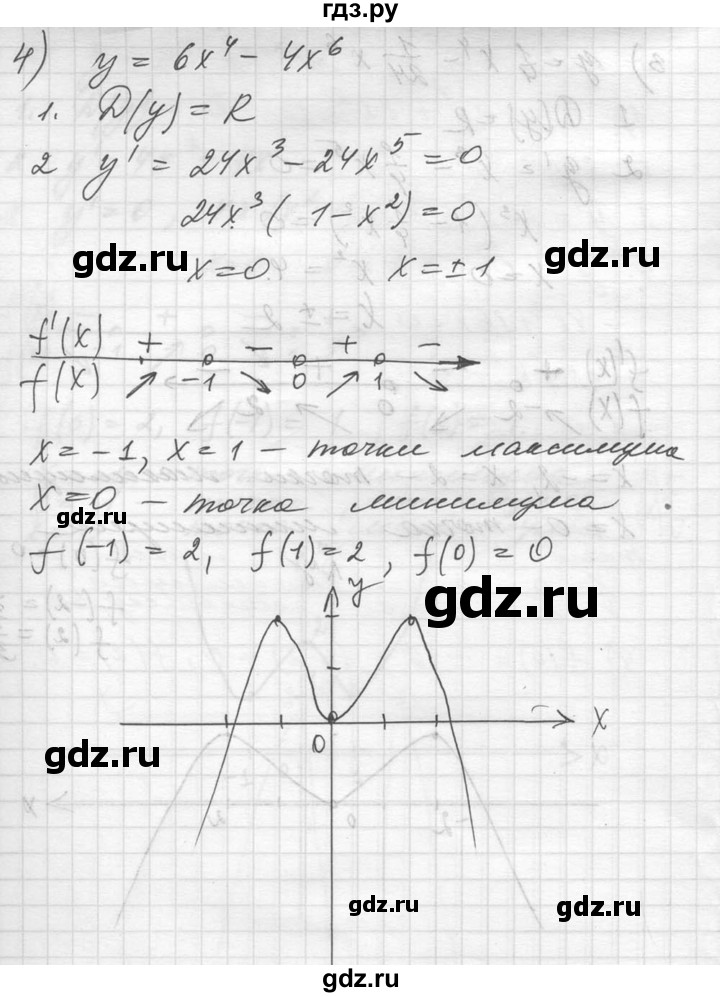 гдз.ру
4) y = 6x⁴ - 4x⁶
1. D(y) = R
2 y' = 24x³ - 24x⁵ = 0
24x³(1 - x²) = 0
gdz.ru x = 0 x = ± 1 gdz.ru
f'(x) + - + -
f(x) ↗ -1 ↘ 0 ↗ 1 ↘
x = -1, x = 1 - точки максимума
x = 0 - точка минимума .
gdz.ru
f(-1) = 2, f(1) = 2, f(0) = 0
y gdz.ru
x
0
gdz.ru
gdz.ru gdz.ru
gdz.ru